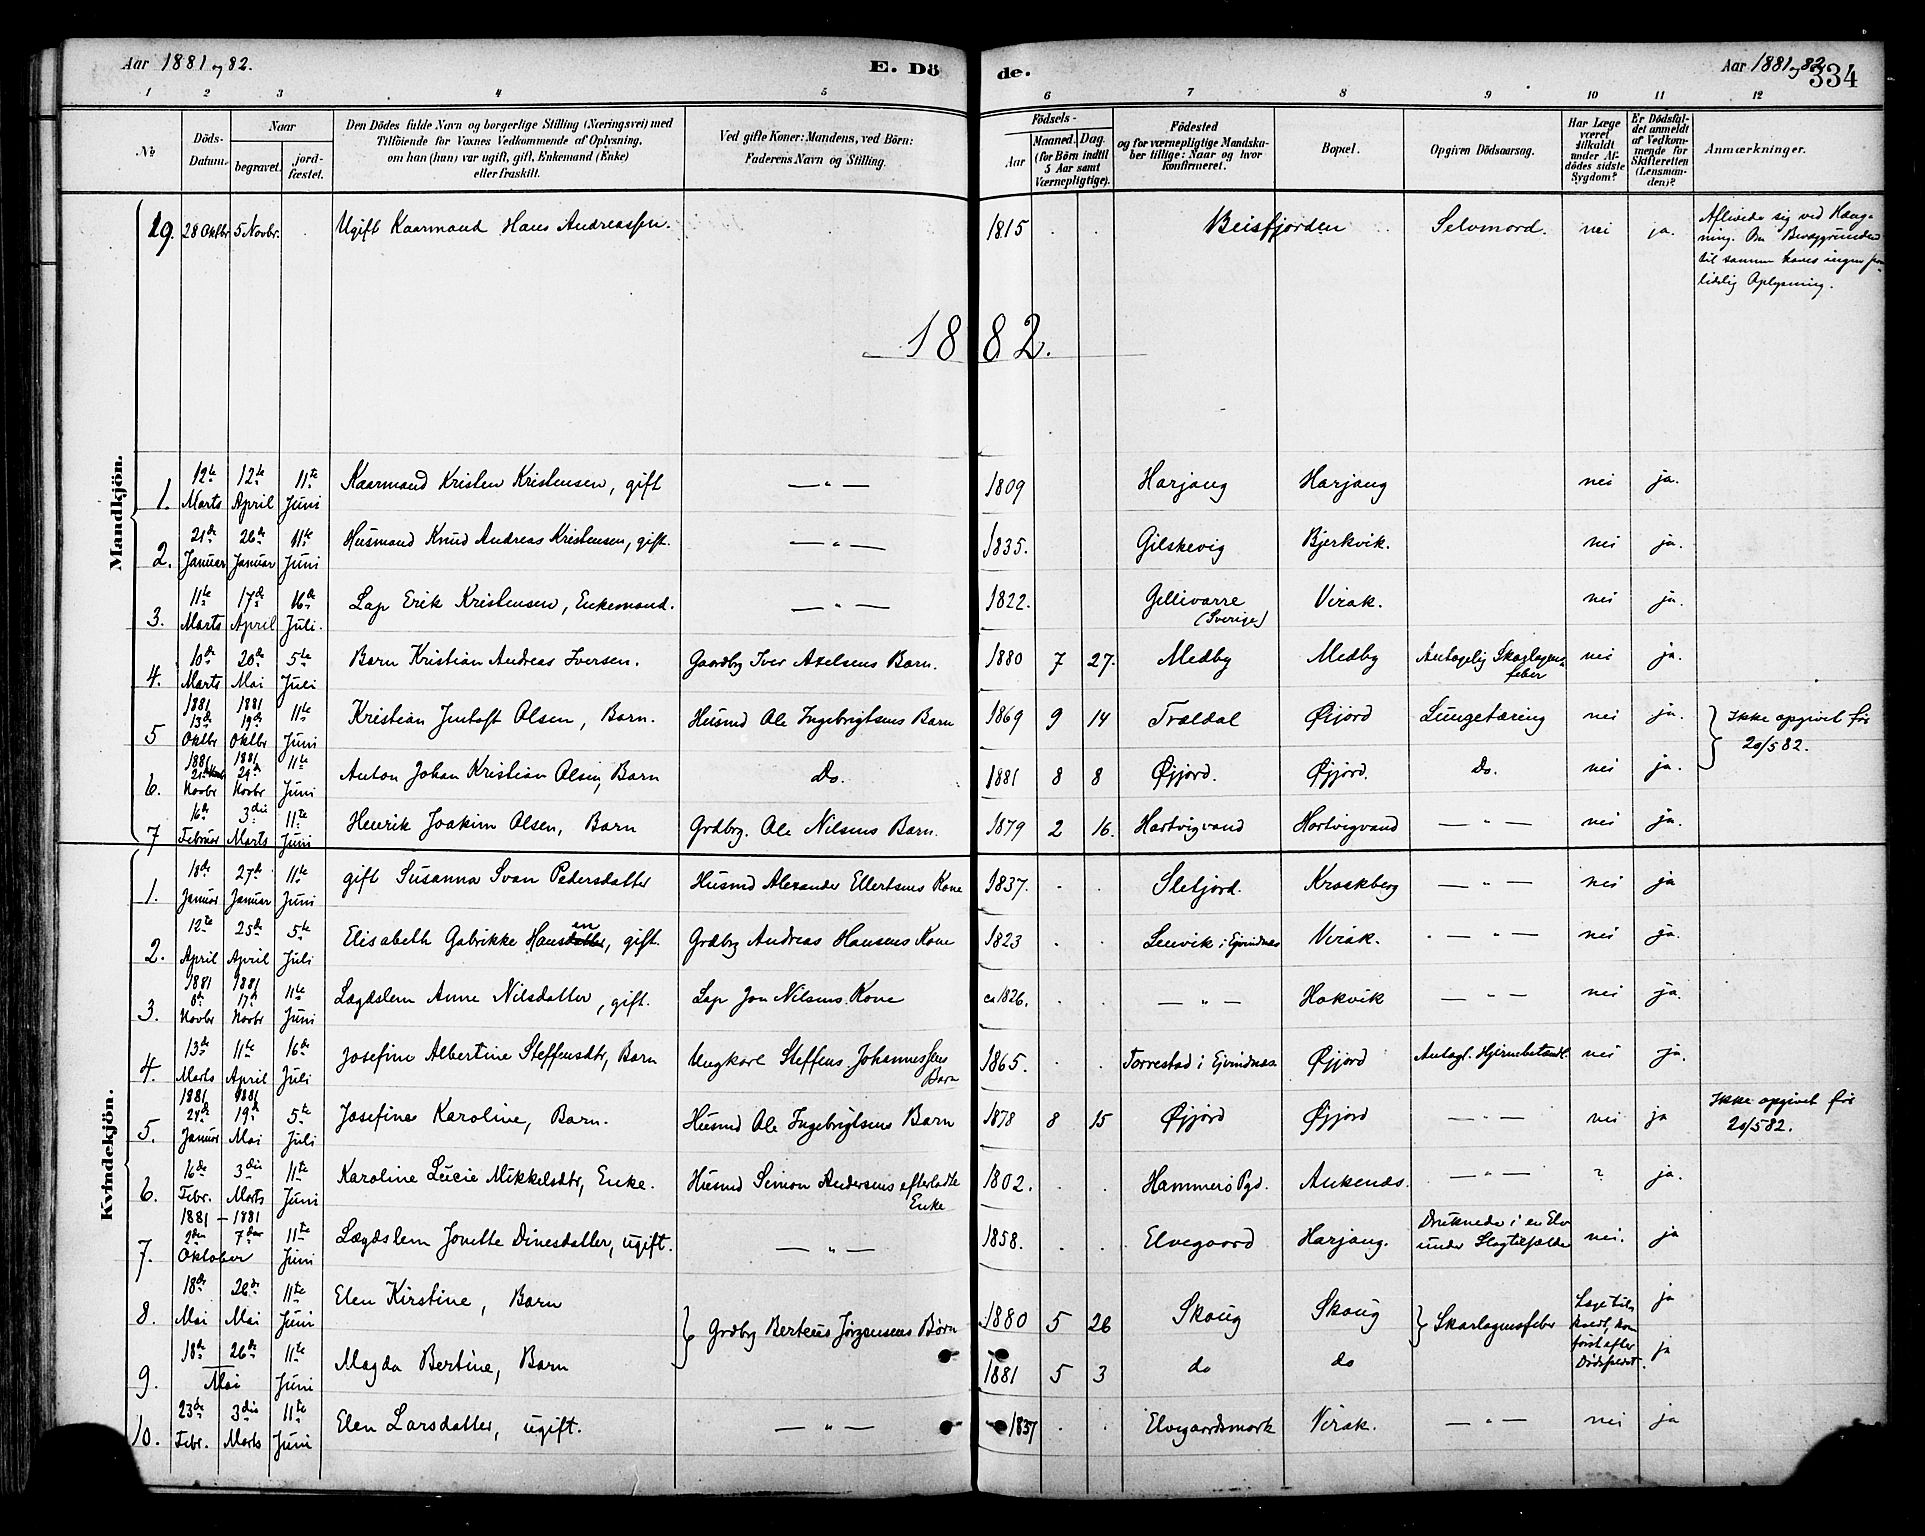 Aar 1881 og 82.
E. Döde.
Aar 1881 og 82.
334
1 2 3 4 5 6 7 8 9 10 11 12
No.
Döds-Datum.
Naar
begravet.
jordfæstet.
Den Dödes fulde Navn og borgerlige Stilling (Næringsvei) med
Tilföiende for Voxnes Vedkommende af Oplysning,
om han (hun) var ugift, gift, Enkemand (Enke)
eller fraskilt.
Ved gifte Koner: Mandens, ved Börn:
Faderens Navn og Stilling.
Födsels-
Aar
Maaned. Dag.
(for Börn indtil
5 Aar samt
Værnepligtige).
Födested
og for værnepligtige Mandskaber tillige: Naar og hvor
konfirmeret.
Bopæl.
Opgiven Dödsaarsag.
Har Læge
været
tilkaldt
under Afdödes sidste
Sygdom?
Er Dödsfaldet anmeldt
af Vedkommende for
Skifteretten
(Lensmanden)?
Anmærkninger.
Mandkjön.
19. 28 Oktbr 5 Novbr. Ugift Kaarmand Hans Andreassen. 1815 Beisfjorden Selvmord. nei ja. Aflivede sig ved Hængning. Om Bevæggrunden til samme haves ingen paalidelig Oplysning.
1882.
1. 12te Marts 12te April 11te Juni Kaarmand Kristen Kristensen, gift — " — 1809 Harjang Harjang nei ja.
2. 21de Januar 26de Januar 11te Juni Husmand Knud Andreas Kristensen, gift. — " — 1835. Gilskevig Bjerkvik. nei ja.
3. 11te Marts 17de April 16de Juli. Lap Erik Kristensen, Enkemand. — " — 1822. Gellivarre (Sverige) Virak. nei ja.
4. 10de Marts 20de Mai 5te Juli Barn Kristian Andreas Iversen. Gaardbr Iver Axelsens Barn. 1880 7 27. Medby Medby Antagelig Skarlagensfeber nei ja.
5 1881 13de Oktbr 1881 19de Oktbr 11te Juni Kristian Olsen, Barn. Husmd Ole Ingebrigtsens Barn 1869 9 14 Traldal Øijord Lungetæring nei ja. Ikke opgivet før 20/5 82.
6. 1881 Novbr 1881 29de Novbr 11te Juni Anton Johan Kristian Olsen, Barn Do. 1881 8 8 Øijord. Øijord. Do. nei ja.
7 16de Februar 3die Marts 11te Juni Henrik Joakim Olsen, Barn Grdbrg. Ole Nilsens Barn. 1879 2 16. Hartvigvand Hartvigvand — " — nei ja.
Kvindekjön.
1. 18de Januar 27de Januar 11te Juni gift Susanna Svan Pedersdatter Husmd Alexander Ellertsens Kone 1837. Sletjord. Kraakberg — " — nei ja
2. 12te April 25de April 5te Juli Elisabeth Gabrikke Hansen, gift. Grdbrg Andreas Hansens Kone 1823 Lenvik i Ejvindnæs Virak. — " — nei ja.
3. 1881 8de Novbr 1881 17de Novbr 11te Juni Lægdslem Anne Nilsdatter, gift. Lap Jon Nilsens Kone ca 1826. — " — Hakvik — " — nei ja.
4. 13de Marts 11te April 16de Juli Josefine Albertine Steffensdtr, Barn Ungkarl Steffens Johannessens Barn 1865. Torrestad i Ejvindnæs. Øijord Antagl. Hjernebetændl. nei ja.
5. 1881 24de Januar 1881 19de Mai 5te Juli Josefine Karoline, Barn. Husmd Ole Ingebrigtsens Barn 1878 8 15 Øijord Øijord — " — nei ja Ikke opgivet før 20/5 82.
6. 16de Febr. 3die Marts 11te Juni Karoline Lucie Mikkelsdtr, Enke. Husmd Simon Andersens efterladte Enke 1802. Hammerö Pgd. Ankenæs. — " — ? ja.
7. 1881 – 1881 2den 7de Oktober 11te Juni Lægdslem Jonette Dinesdatter, ugift. — " — 1858. Elvegaard Harjang. Druknede i en Elv under Slagtilfælde nei. ja
8. 18de Mai 26de Mai 11te Juni Elen Kirstine, Barn Grdbrg Berteus Jørgensens Børn 1880 5 26 Skoug Skoug Skarlagensfeber Læge tilkaldt, kom først efter Dødsfaldet. ja
9. 18de 26de Mai 11te Juni Magda Bertine, Barn 1881 5 3 do do ja
10. 23de Febr. 3die Marts 11te Juni Elen Larsdatter, ugift. — " — 1837 Elvegaardsmark Virak. — " — nei ja